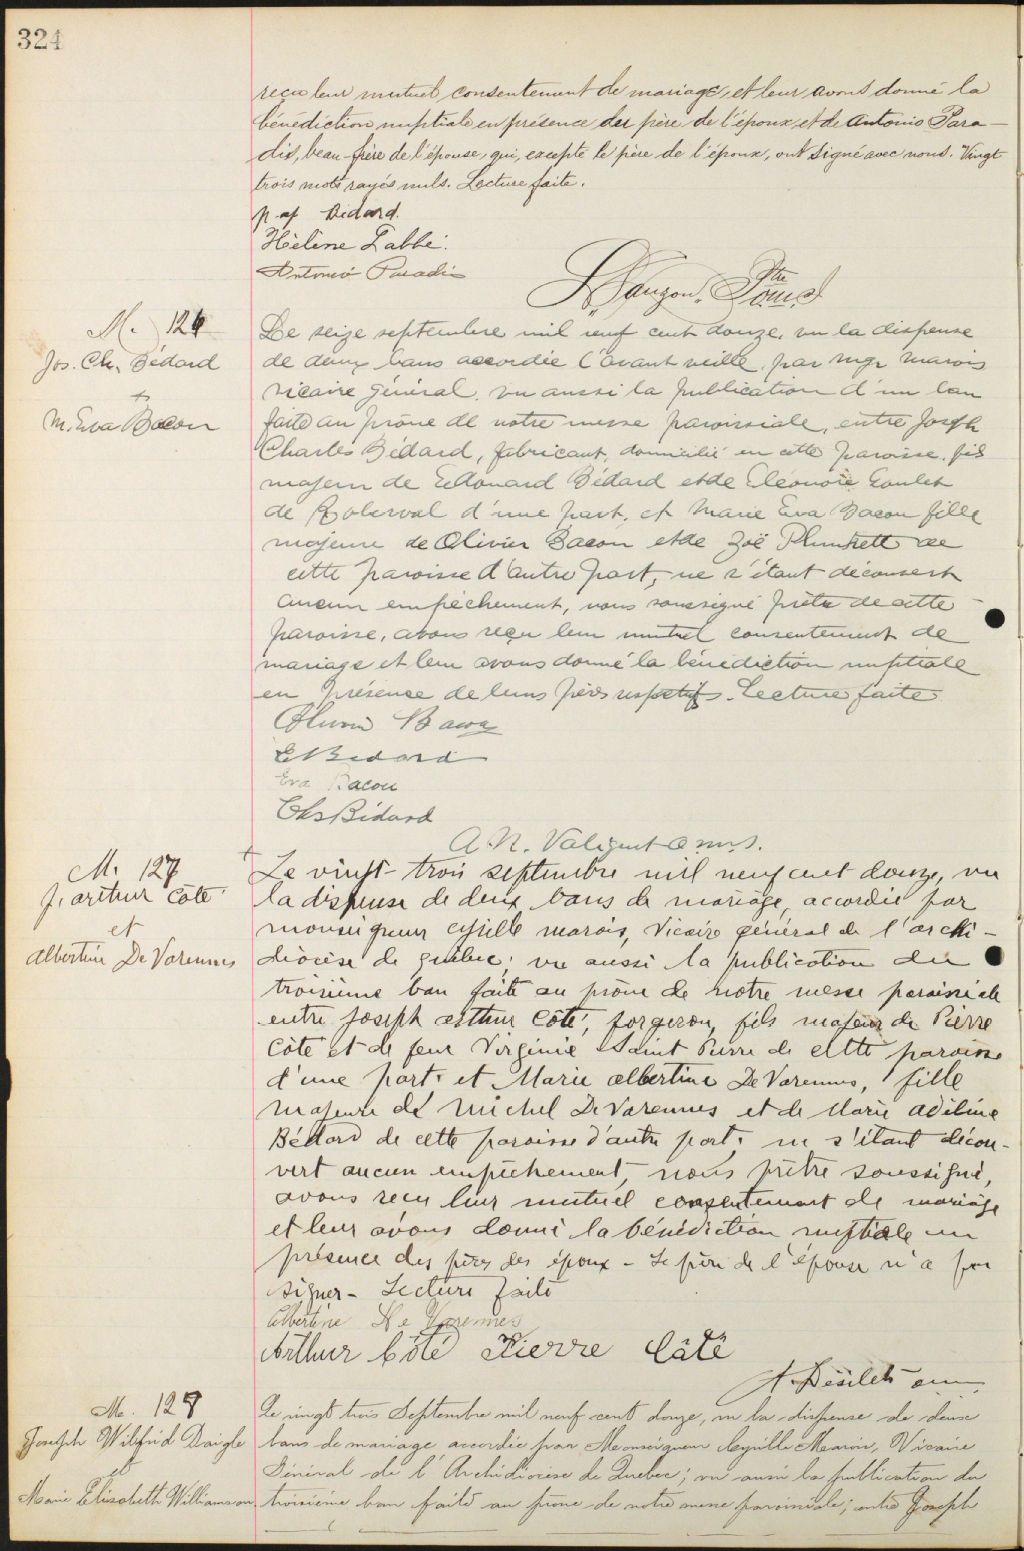 324
reçu leur mutuel consentement de mariage, et leur avons donné la
bénédiction nuptiale en présence du père de l'époux, et de Antonio Para-
dis, beau-frère de l'épouse, qui, excepté le père de l'époux, ont signé avec nous. Vingt
trois mots rayés nuls. Lecture faite.
Bédard.
Hélène Labbé.
Antonio Paradis
Lauzon, Ptre O.m.I
M. 126
Jos. Ch. Bédard
+
M. Eva Bacon
Le seize septembre mil neuf cent douze, vu la dispense
de deux bans accordée l'avant veille, par Mgr Marois
vicaire général, vu aussi la publication d'un ban
faite au prône de notre messe paroissiale, entre Joseph
Charles Bédard, fabricant, domicilié en cette paroisse, fils
majeur de Edouard Bédard et de Eléonore Goulet
de Roberval d'une part, et Marie Eva Bacon fille
majeure de Olivier Bacon et de Zoë Plunkett de
cette paroisse d'autre part, ne s'étant découvert
aucun empêchement, nous soussigné prêtre de cette
paroisse, avons reçu leur mutuel consentement de
mariage et leur avons donné la bénédiction nuptiale
en présence de leurs pères respectifs. Lecture faite
Olivier Bacon
E Bédard
Eva Bacon
Chs Bédard
A. N. Valiquet o.m.I.
M. 127
J. Arthur Côté
et
Albertine De Varennes
Le vingt-trois septembre mil neuf cent douze, vu
la dispense de deux bans de mariage, accordée par
monseigneur Cyrille Marois, Vicaire général de l'archi-
diocèse de Québec; vu aussi la publication du
troisième ban faite au prône de notre messe paroissiale
entre Joseph Arthur Côté, forgeron, fils majeur de Pierre
Côté et de feue Virginie Saint Pierre de cette paroisse
d'une part. et Marie Albertine De Varennes, fille
majeure de Michel De Varennes et de Marie Adéline
Bédard de cette paroisse d'autre part. ne s'étant décou-
vert aucun empêchement, nous prêtre soussigné,
avons reçu leur mutuel consentement de mariage
et leur avons donné la bénédiction nuptiale en
présence des pères des époux - Le père de l'épouse n'a pu
signer - Lecture faite
Albertine De Varennes
Arthur Côté Pierre Côté
A. Désilets omi
M. 128
Joseph Wilfrid Daigle
et
Marie Elisabeth Williamson
Le vingt trois Septembre mil neuf cent douze, vu la dispense de deux
bans de mariage accordée par Monseigneur Cyrille Marois, Vicaire
Général de l'Archidiocèse de Québec; vu aussi la publication du
troisième ban faite au prône de notre messe paroissiale; entre Joseph